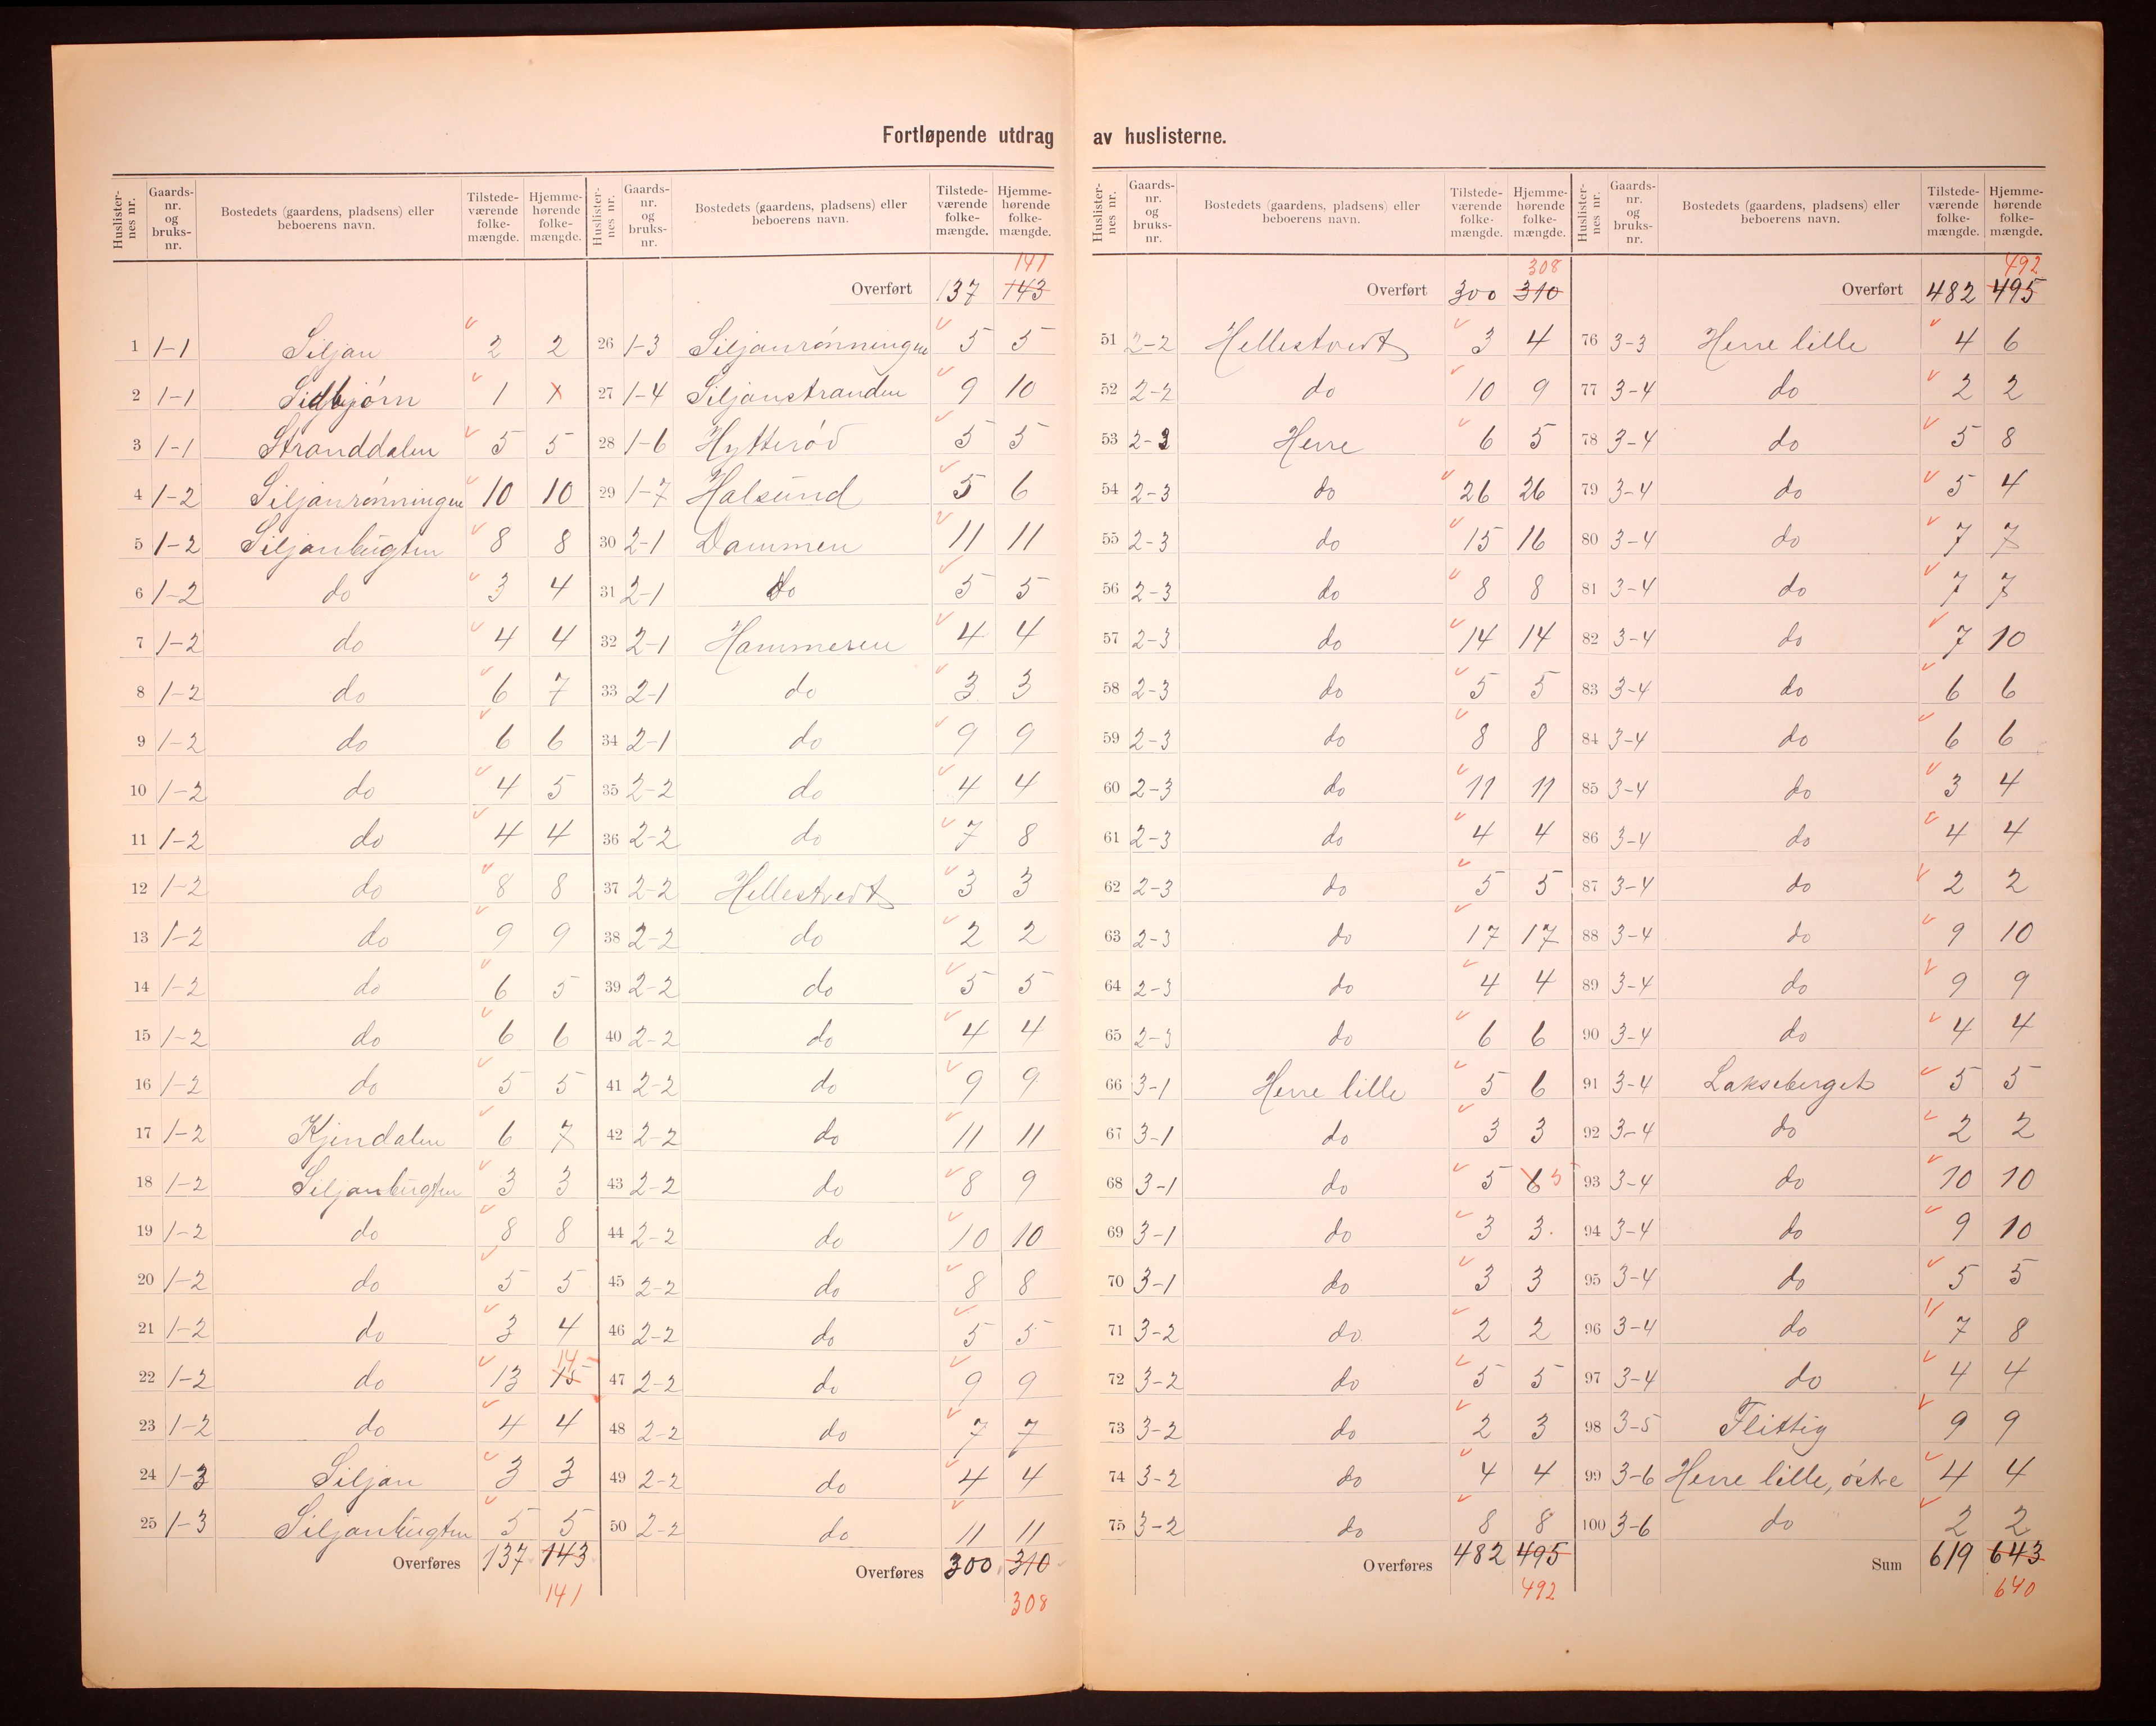 Fortløpende utdrag av huslisterne.
Huslisternes nr. Gaardsnr. og bruksnr. Bostedets (gaardens, pladsens) eller beboerens navn. Tilstedeværende folkemængde. Hjemmehørende folkemængde.
1 1-1 Siljan 2 2
2 1-1 Sidbjørn 1 x
3 1-1 Stranddalen 5 5
4 1-2 Siljanrønningen 10 10
5 1-2 Siljanbugten 8 8
6 1-2 do 3 4
7 1-2 do 4 4
8 1-2 do 6 7
9 1-2 do 6 6
10 1-2 do 4 5
11 1-2 do 4 4
12 1-2 do 8 8
13 1-2 do 9 9
14 1-2 do 6 5
15 1-2 do 6 6
16 1-2 do 5 5
17 1-2 Kjendalen 6 7
18 1-2 Siljanbugten 3 3
19 1-2 do 8 8
20 1-2 do 5 5
21 1-2 do 3 4
22 1-2 do 13 15 14
23 1-2 do 4 4
24 1-3 Siljan 3 3
25 1-3 Siljanbugten 5 5
Overføres 137 143
141
Huslisternes nr. Gaardsnr. og bruksnr. Bostedets (gaardens, pladsens) eller beboerens navn. Tilstedeværende folkemængde. Hjemmehørende folkemængde.
141
Overført 137 143
26 1-3 Siljanrønningen 5 5
27 1-4 Siljanstranden 9 10
28 1-6 Hytterød 5 5
29 1-7 Halsund 5 6
30 2-1 Dammen 11 11
31 2-1 do 5 5
32 2-1 Hammeren 4 4
33 2-1 do 3 3
34 2-1 do 9 9
35 2-2 do 4 4
36 2-2 do 7 8
37 2-2 Hellestvedt 3 3
38 2-2 do 2 2
39 2-2 do 5 5
40 2-2 do 4 4
41 2-2 do 9 9
42 2-2 do 11 11
43 2-2 do 8 9
44 2-2 do 10 10
45 2-2 do 8 8
46 2-2 do 5 5
47 2-2 do 9 9
48 2-2 do 7 7
49 2-2 do 4 4
50 2-2 do 11 11
Overføres 300 310
308
Huslisternes nr. Gaardsnr. og bruksnr. Bostedets (gaardens, pladsens) eller beboerens navn. Tilstedeværende folkemængde. Hjemmehørende folkemængde.
308
Overført 300 310
51 2-2 Hellestvedt 3 4
52 2-2 do 10 9
53 2-3 Herre 6 5
54 2-3 do 26 26
55 2-3 do 15 16
56 2-3 do 8 8
57 2-3 do 14 14
58 2-3 do 5 5
59 2-3 do 8 8
60 2-3 do 11 11
61 2-3 do 4 4
62 2-3 do 5 5
63 2-3 do 17 17
64 2-3 do 4 4
65 2-3 do 6 6
66 3-1 Herre lille 5 6
67 3-1 do 3 3
68 3-1 do 5 6 5
69 3-1 do 3 3
70 3-1 do 3 3
71 3-2 do 2 2
72 3-2 do 5 5
73 3-2 do 2 3
74 3-2 do 4 4
75 3-2 do 8 8
Overføres 482 495
492
Huslisternes nr. Gaardsnr. og bruksnr. Bostedets (gaardens, pladsens) eller beboerens navn. Tilstedeværende folkemængde. Hjemmehørende folkemængde.
492
Overført 482 495
76 3-3 Herre lille 4 6
77 3-4 do 2 2
78 3-4 do 5 8
79 3-4 do 5 4
80 3-4 do 7 7
81 3-4 do 7 7
82 3-4 do 7 10
83 3-4 do 6 6
84 3-4 do 6 6
85 3-4 do 3 4
86 3-4 do 4 4
87 3-4 do 2 2
88 3-4 do 9 10
89 3-4 do 9 9
90 3-4 do 4 4
91 3-4 Lakseberget 5 5
92 3-4 do 2 2
93 3-4 do 10 10
94 3-4 do 9 10
95 3-4 do 5 5
96 3-4 do 7 8
97 3-4 do 4 4
98 3-5 Flittig 9 9
99 3-6 Herre lille, östre 4 4
100 3-6 do 2 2
Sum 619 643
640